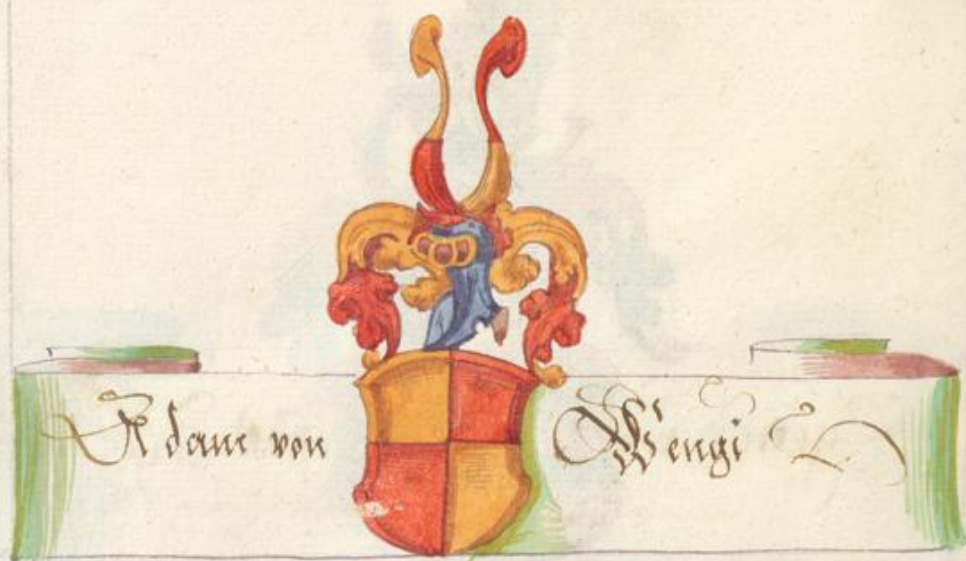 Adam von Wengi